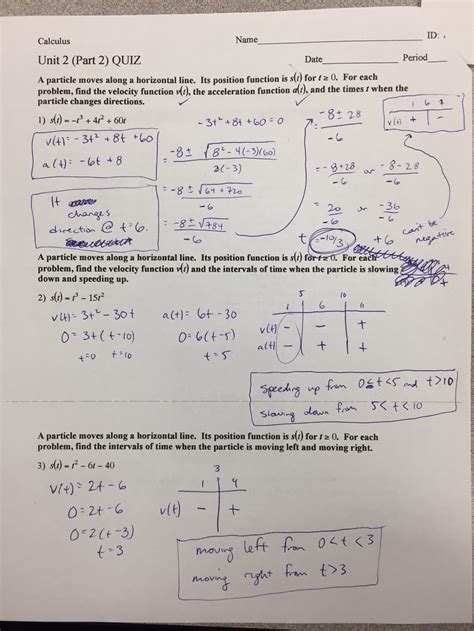 Calculus Name ID:
Unit 2 (Part 2) QUIZ Date Period
A particle moves along a horizontal line. Its position function is s(t) for t ≥ 0. For each
problem, find the velocity function v(t), the acceleration function a(t), and the times t when the
particle changes directions.
1) s(t) = -t³ + 4t² + 60t
v(t) = -3t² + 8t + 60
a(t) = -6t + 8
It
changes
direction @ t=6.
-3t² + 8t + 60 = 0
= -8 ± √8² - 4(-3)(60)
2(-3)
= -8 ± √64 + 720
-6
= -8 ± √784
-6
= -8 ± 28
-6
= -8+28 or -8-28
-6 -6
= 20 or -36
-6 -6
t = -10/3 +6
can't be
negative
1 6 7
v(t) + -
A particle moves along a horizontal line. Its position function is s(t) for t ≥ 0. For each
problem, find the velocity function v(t) and the intervals of time when the particle is slowing
down and speeding up.
2) s(t) = t³ - 15t²
v(t) = 3t² - 30t a(t) = 6t - 30
0 = 3t(t-10) 0 = 6(t-5)
t=0 t=10 t = 5
5 10
1 6 11
v(t) - - +
a(t) - + +
speeding up from 0≤t<5 and t>10
slowing down from 5<t<10
A particle moves along a horizontal line. Its position function is s(t) for t ≥ 0. For each
problem, find the intervals of time when the particle is moving left and moving right.
3) s(t) = t² - 6t - 40
v(t) = 2t - 6
0 = 2t - 6
0 = 2(t-3)
t = 3
3
1 4
v(t) - +
moving left from 0<t<3
moving right from t>3